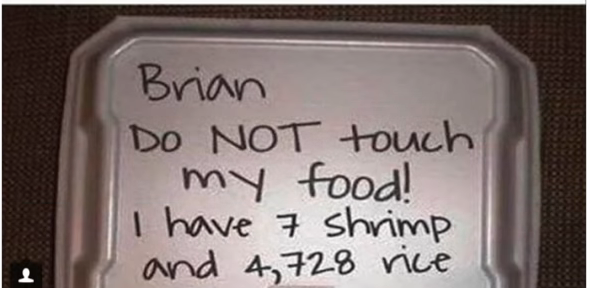 Brian
DO NOT touch
my food!
I have 7 shrimp
and 4,728 rice